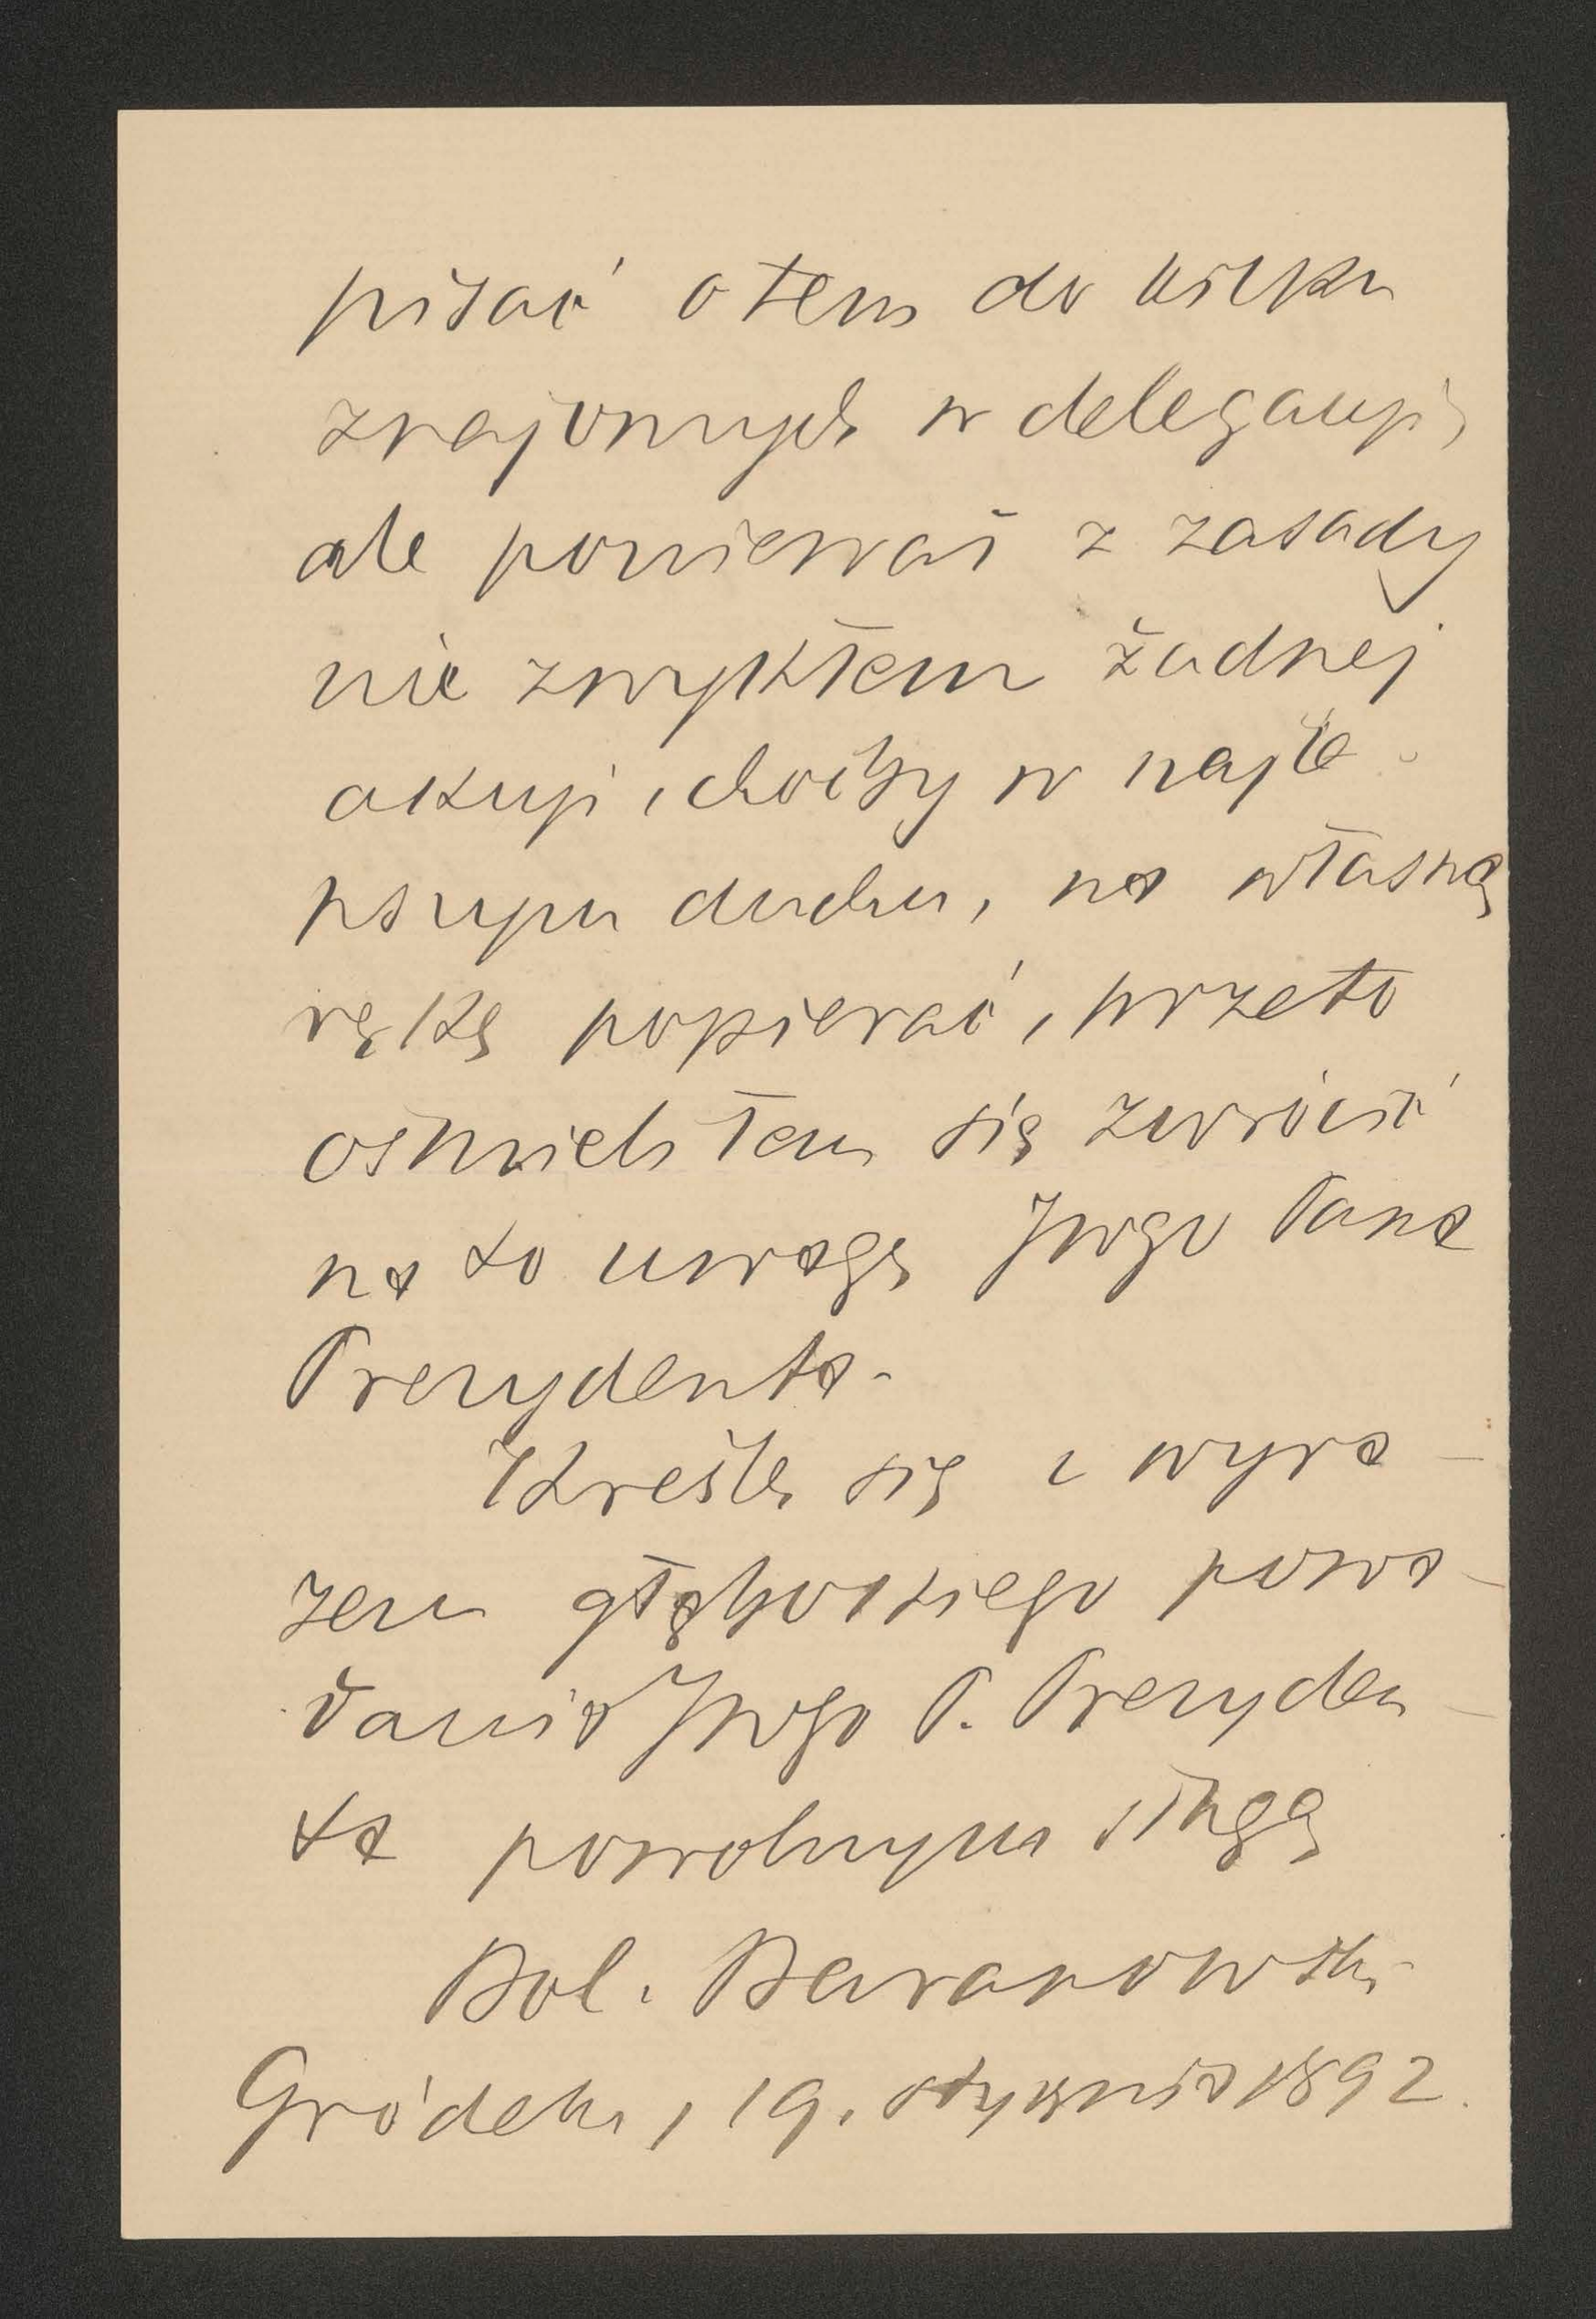 pisać o tem do kilku
znajomych w delegacyi,
ale ponieważ z zasady
nie zwykłem żadnej
akcyi, choćby w najle-
pszym duchu, na własną
rękę popierać, przeto
ośmieliłem się zwrócić
na to uwagę JWgo Pana
Prezydenta.
Kreślę się z wyra-
zem głębokiego powa-
żania JWgo P. Prezyden-
ta powolnym sługą
Bol. Baranowski
Gródek, 19. stycznia 1892.